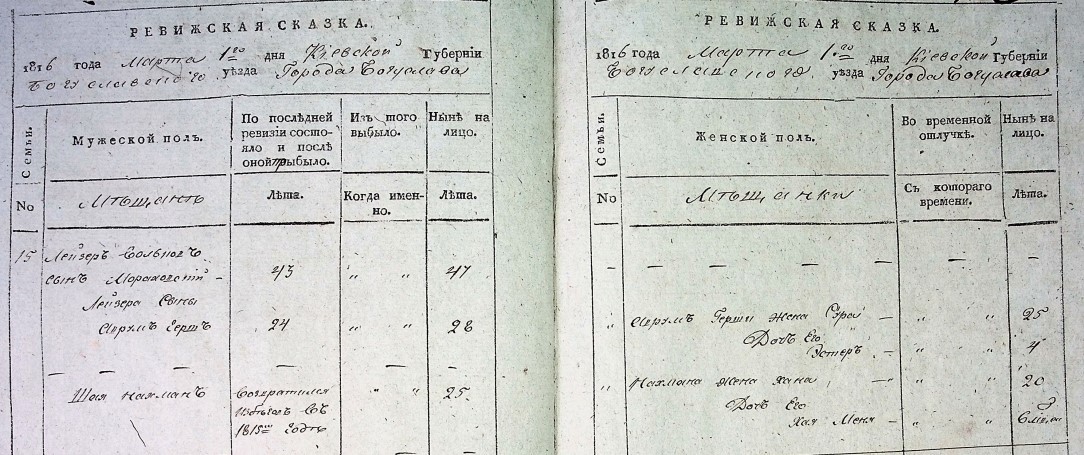 РЕВИЖСКАЯ СКАЗКА.
1816 года Марта 1го дня Кіевской Губерніи
Богуславского уѣзда Города Богуслава
Семьи.
Мужеской полъ.
По послѣдней
ревизіи состо-
яло и послѣ
оной прибыло.
Изъ того
выбыло.
Нынѣ на
лицо.
No
Мѣщанъ
Лѣта.
Когда имен-
но.
Лѣта.
15 Лейзеръ Вольковъ
сынъ 43 „ „ 47
Лейзера Сыны
24 „ „ 28
Шая Нахманъ Возвратился „ „ 25
изъ въ
1815мъ Годѣ
РЕВИЖСКАЯ СКАЗКА.
1816 года Марта 1го дня Кіевской Губерніи
Богуславского уѣзда Города Богуслава
Семьи.
Женской полъ.
Во временной
отлучкѣ.
Нынѣ на
лицо.
No
Мѣщанки
Съ котораго
времени.
Лѣта.
„ Герши жена Сура — „ „ 25
Дочь Его
Эстеръ — „ „ 4
„ Нахмана жена Хана — „ „ 20
Дочь Его
Хая Меня — „ „ 6